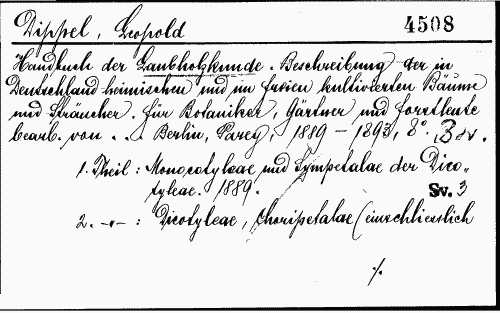 Dippel, Leopold 4508
Handbuch der Laubholzkunde. Beschreibung der in
Deutschland heimischen und im freien kultivierten Bäume
und Sträucher. für Botaniker, Gärtner und Forstleute
bearb. von . . Berlin, Parey, 1889 - 1893, 8°. 3 Sv.
1. Theil : Monocotyleae und Sympetalae der Dico-
tyleae. 1889. Sv. 3
2. -"- : Dicotyleae, Choripetalae (einschliesslich
./.